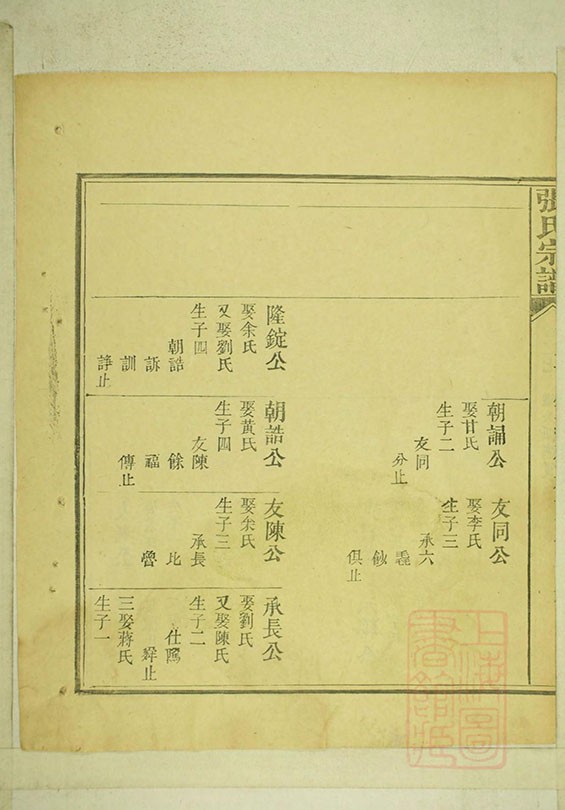 張氏宗譜
朝誦公
娶甘氏
生子二
友同
分止
友同公
娶李氏
生子三
承六
俱止
隆錠公
娶余氏
又娶劉氏
生子四
朝誥
訴
訓
諍止
朝誥公
娶黃氏
生子四
友陳
餘
福
傳止
友陳公
娶余氏
生子三
承長
比
魯
承長公
娶劉氏
又娶陳氏
生子二
仕隲
三娶蔣氏
生子一
上海圖
書館藏